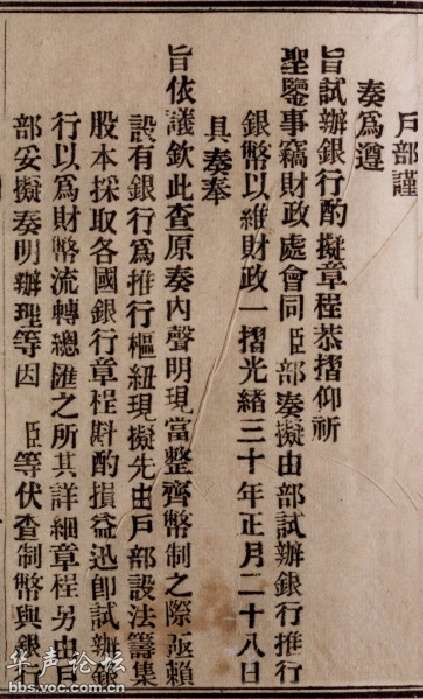 戶部謹
奏為遵
旨試辦銀行酌擬章程恭摺仰祈
聖鑒事竊財政處會同臣部奏擬由部試辦銀行推行
銀幣以維財政一摺光緒三十年正月二十八日
具奏奉
旨依議欽此查原奏內聲明現當整齊幣制之際亟賴
設有銀行為推行樞紐現擬先由戶部設法籌集
股本採取各國銀行章程斟酌損益迅即試辦銀
行以為財幣流轉總匯之所其詳細章程另由戶
部妥擬奏明辦理等因 臣等伏查制幣與銀行
华声论坛
bbs.voc.com.cn